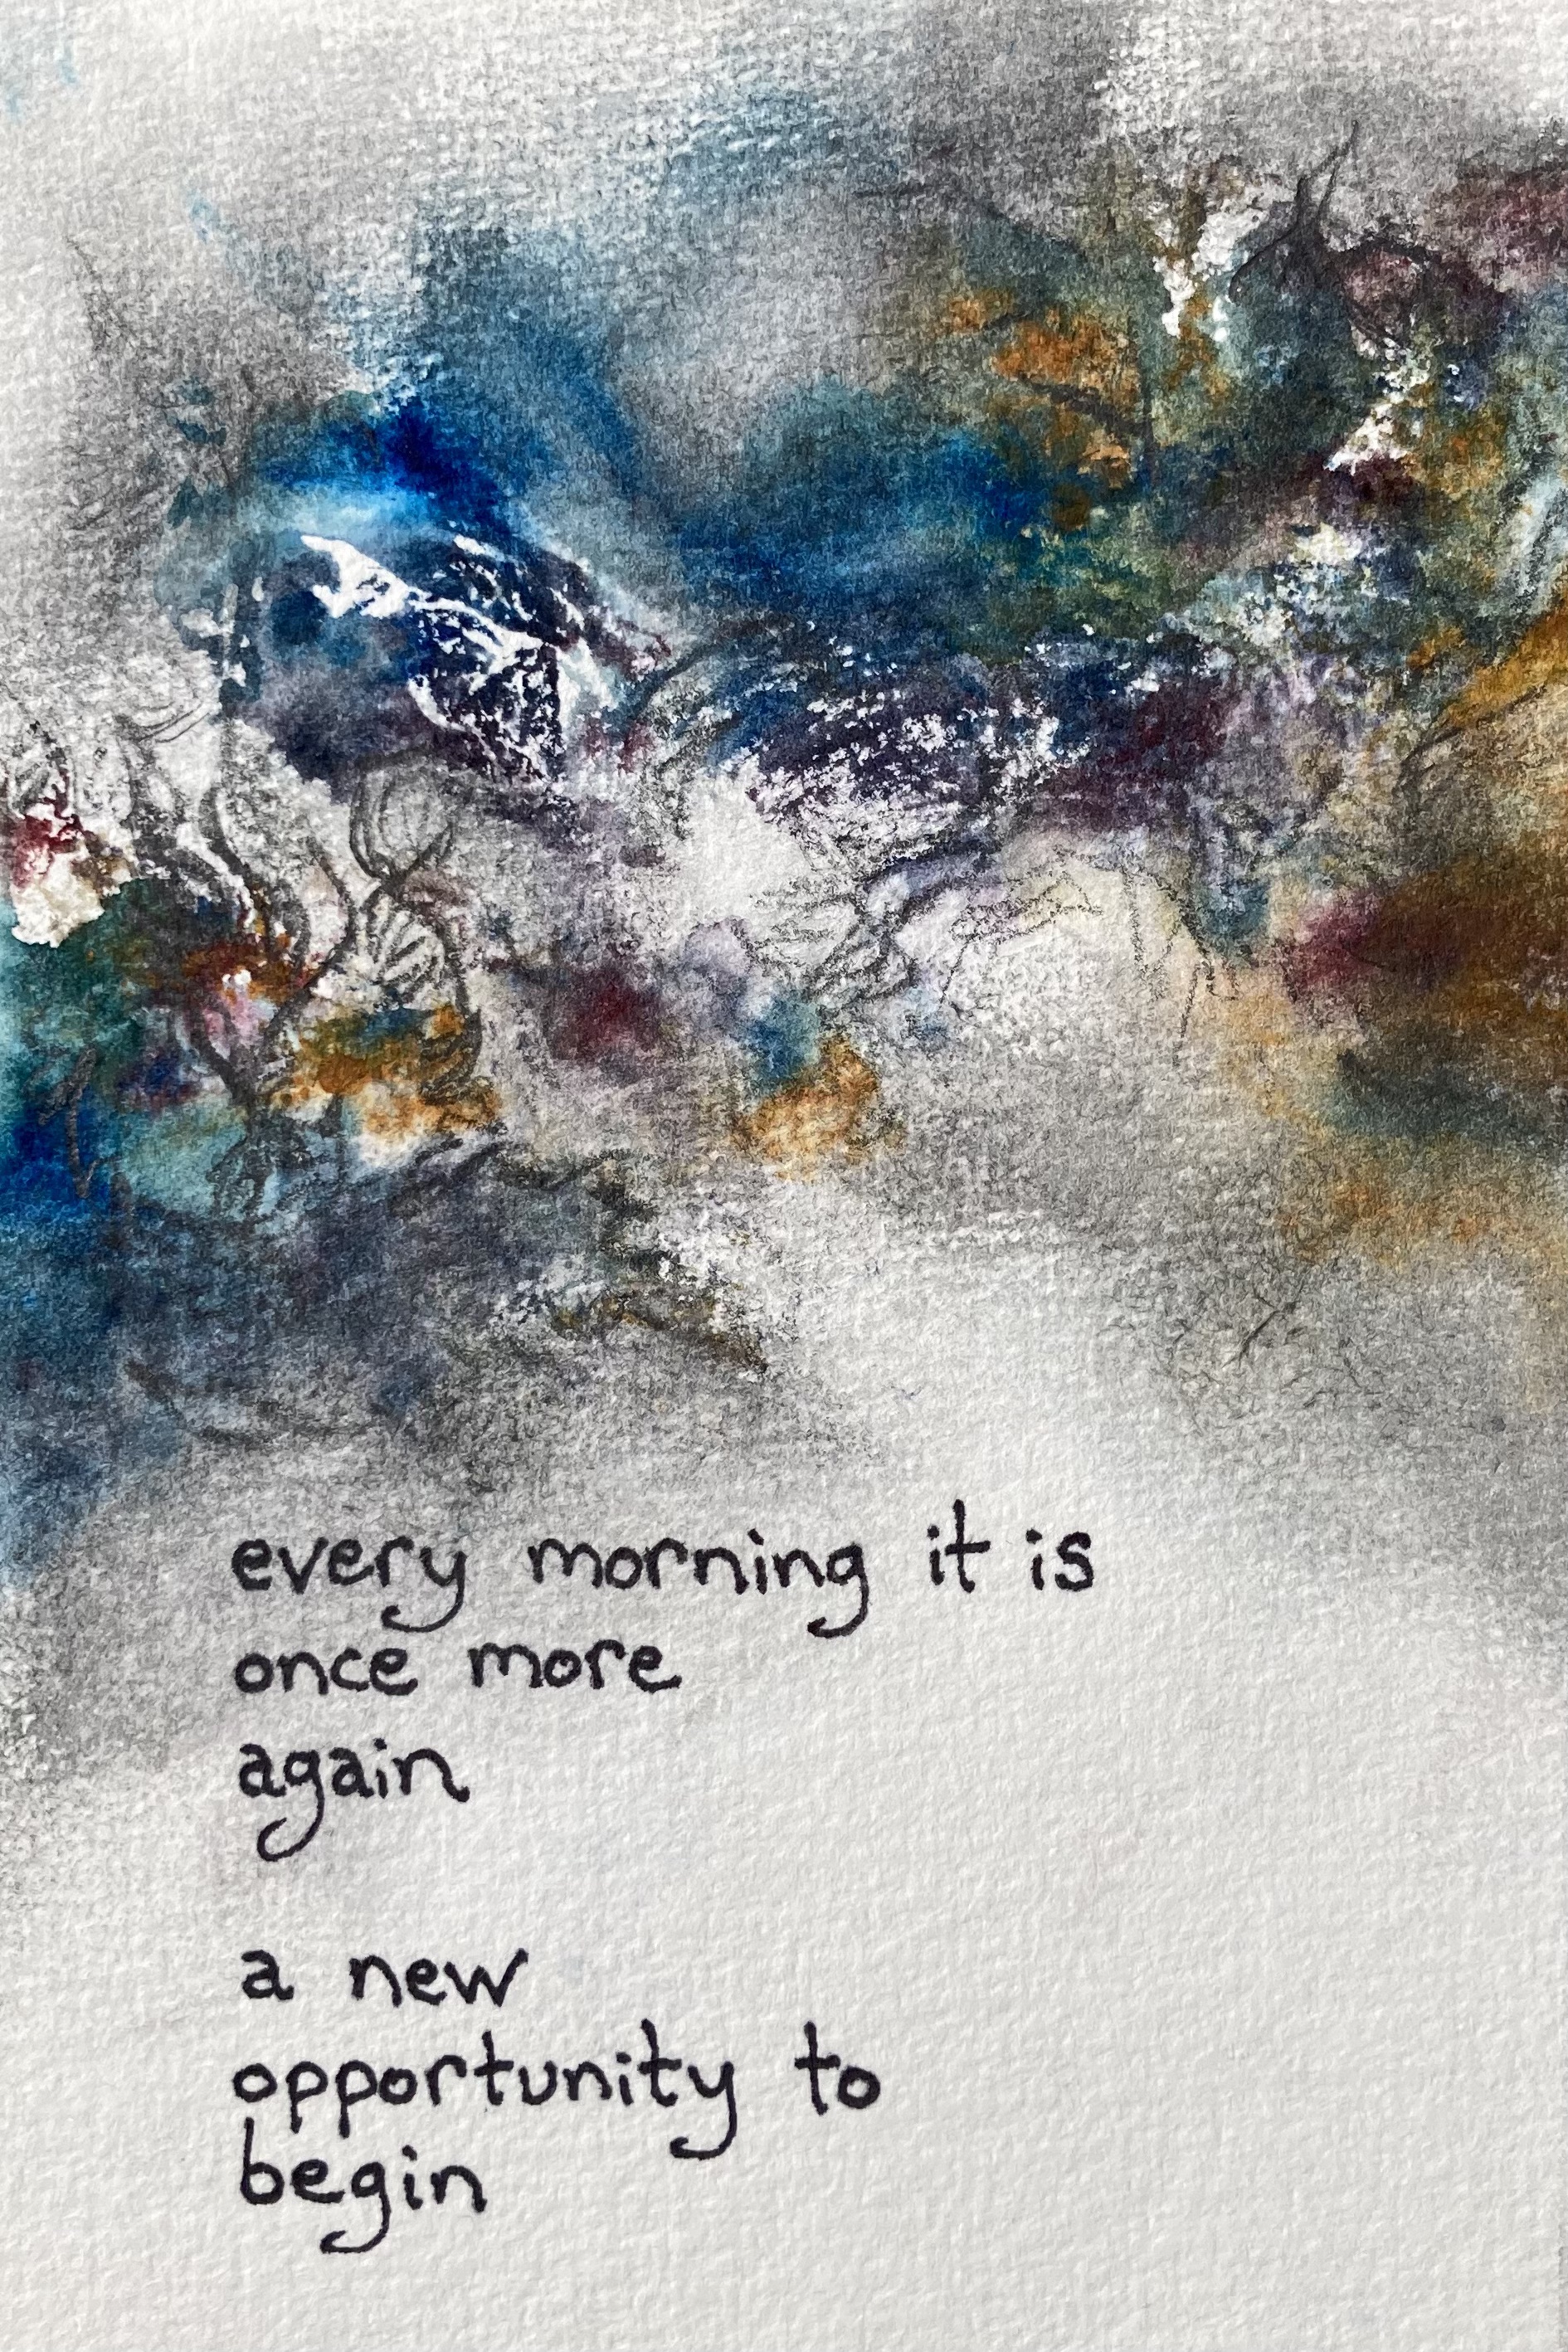 every morning it is
once more
again
a new
opportunity to
begin